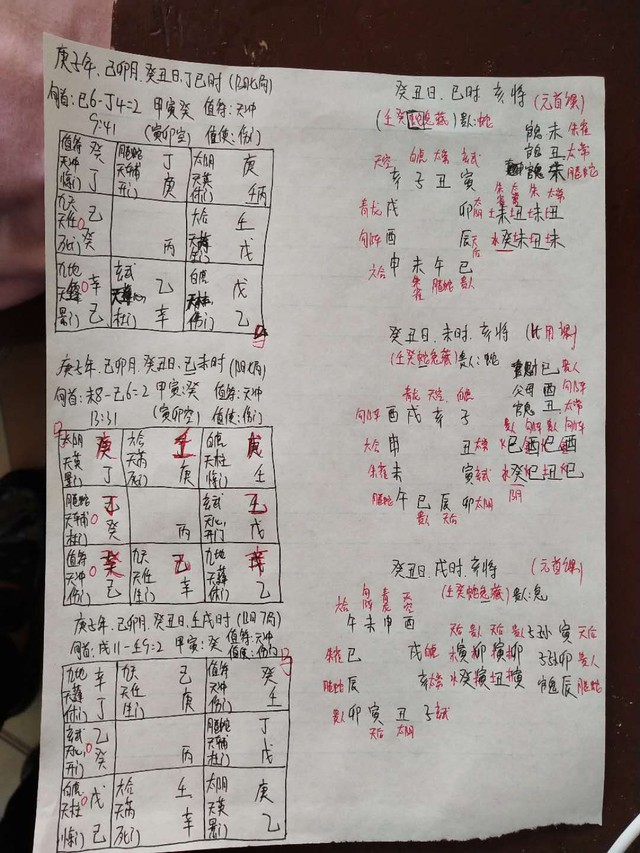 庚子年、己卯月、癸丑日、丁巳时(阳7局)
旬首:巳6-丁4=2 甲寅癸 值符:天冲
9:41 (寅卯空) 值使:伤门
值符 癸 螣蛇 丁 太阴 庚
天冲 天辅 天英
惊门 丁 开门 庚 休门 壬丙
九天 己 六合 壬
天任
死门 癸 丙 生门 戊
九地 辛 玄武 乙 白虎 戊
天柱
景门 己 杜门 辛 伤门 乙
庚子年、己卯月、癸丑日、己未时(阳7局)
旬首:未8-己6=2 甲寅:癸 值符:天冲
13:31 (寅卯空) 值使:伤门
太阴 庚 六合 壬 白虎 戊
天英 天芮 天柱
景门 丁 死门 庚 惊门 壬
螣蛇 丁 玄武 乙
天辅 天心
杜门 癸 丙 开门 戊
值符 癸 九天 己 九地 辛
天冲 天任 天蓬
伤门 己 生门 辛 休门 乙
庚子年、己卯月、癸丑日、壬戌时(阳7局)
旬首:戌11-壬9=2 甲寅:癸 值符:天冲
值使:伤门
九地 辛 九天 己 值符 癸
天蓬 天任 天冲
休门 丁 生门 庚 伤门 壬
玄武 乙 螣蛇 丁
天心 天辅
开门 癸 丙 杜门 戊
白虎 戊 六合 壬 太阴 庚
天柱 天芮 天英
惊门 己 死门 辛 景门 乙
癸丑日、巳时 亥将 (元首课)
(壬癸蛇兔藏) 贵人:蛇
官鬼 未 朱雀
官鬼 丑 太常
官鬼 未 螣蛇
天空 白虎 太常 玄武
亥 子 丑 寅
青龙 戌 卯 太阴 未丑未丑
勾陈 酉 辰 天后 癸未丑未
六合 申 未 午 巳
朱雀 螣蛇 贵人
癸丑日、未时、亥将
(壬癸蛇兔藏) 贵人:蛇
妻财 巳 贵人
父母 酉 勾陈
官鬼 丑 太常
青龙 天空 白虎
勾陈 酉 戌 亥 子
六合 申 丑 太常 巳酉巳酉
朱雀 未 寅 玄武 癸巳丑巳
螣蛇 午 巳 辰 卯 太阴
贵人 天后
癸丑日、戌时、亥将 (元首课)
(壬癸蛇兔藏) 贵人:兔
六合 勾陈 青龙 天空
午 未 申 酉
朱雀 巳 戌 白虎 寅卯寅卯
螣蛇 辰 亥 太常 癸寅丑寅
贵人 卯 寅 丑 子 玄武
天后 太阴
天后 贵人 天后 贵人
子孙 寅 天后
子孙 卯 贵人
官鬼 辰 螣蛇